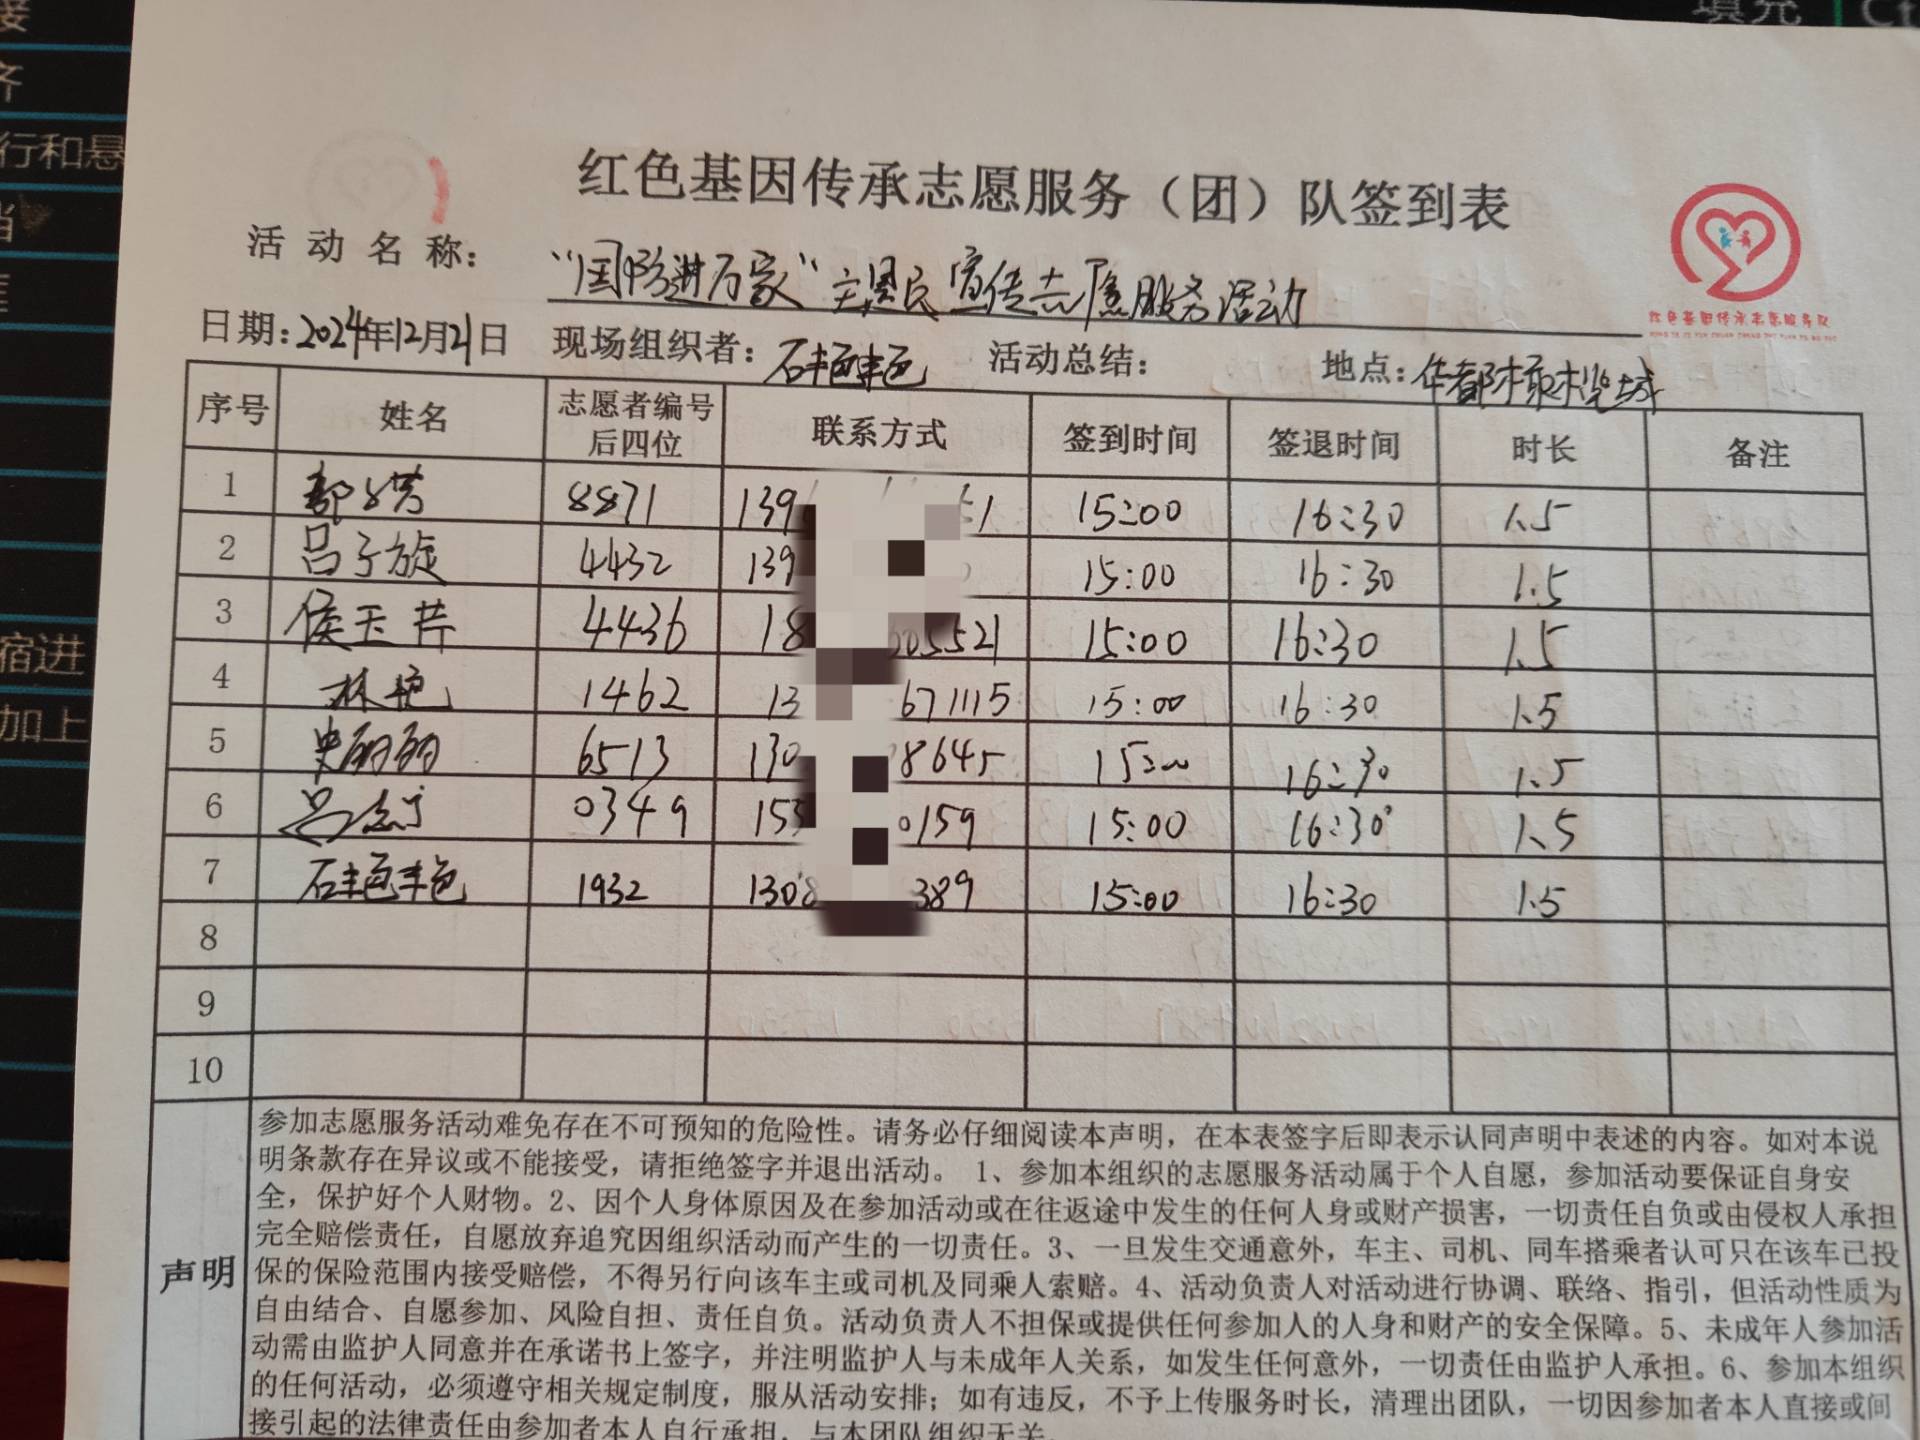 填充
齐
行和悬
宿进
加上
红色基因传承志愿服务（团）队签到表
活动名称： "国防进万家"主题 宣传志愿服务活动
红色基因传承志愿服务队
日期：2024年12月21日 现场组织者：石艳艳 活动总结： 地点：华都
序号 姓名 志愿者编号后四位 联系方式 签到时间 签退时间 时长 备注
1 8871 139 51 15:00 16:30 1.5
2 吕子旋 4432 139 15:00 16:30 1.5
3 侯玉芹 4436 18 005521 15:00 16:30 1.5
4 林艳 1462 13 671115 15:00 16:30 1.5
5 史丽丽 6513 130 8645 15:00 16:30 1.5
6 0349 155 0159 15:00 16:30 1.5
7 石艳艳 1932 1308 389 15:00 16:30 1.5
8
9
10
声明
参加志愿服务活动难免存在不可预知的危险性。请务必仔细阅读本声明，在本表签字后即表示认同声明中表述的内容。如对本说
明条款存在异议或不能接受，请拒绝签字并退出活动。 1、参加本组织的志愿服务活动属于个人自愿，参加活动要保证自身安
全，保护好个人财物。2、因个人身体原因及在参加活动或在往返途中发生的任何人身或财产损害，一切责任自负或由侵权人承担
完全赔偿责任，自愿放弃追究因组织活动而产生的一切责任。3、一旦发生交通意外，车主、司机、同车搭乘者认可只在该车已投
保的保险范围内接受赔偿，不得另行向该车主或司机及同乘人索赔。4、活动负责人对活动进行协调、联络、指引，但活动性质为
自由结合、自愿参加、风险自担、责任自负。活动负责人不担保或提供任何参加人的人身和财产的安全保障。5、未成年人参加活
动需由监护人同意并在承诺书上签字，并注明监护人与未成年人关系，如发生任何意外，一切责任由监护人承担。6、参加本组织
的任何活动，必须遵守相关规定制度，服从活动安排；如有违反，不予上传服务时长，清理出团队，一切因参加者本人直接或间
接引起的法律责任由参加者本人自行承担，与本团队组织无关。